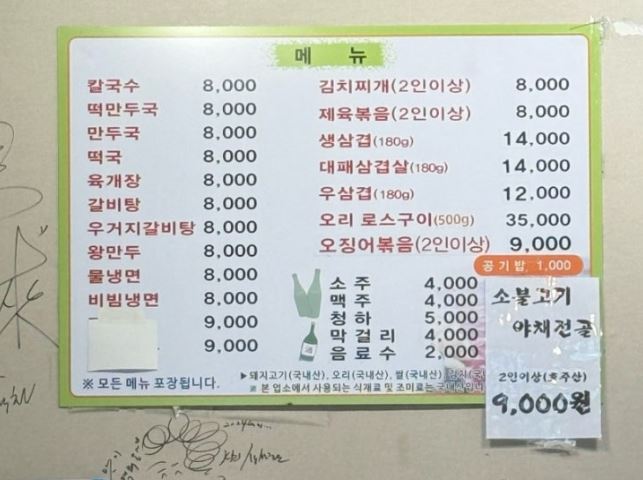 메 뉴
칼국수 8,000
떡만두국 8,000
만두국 8,000
떡국 8,000
육개장 8,000
갈비탕 8,000
우거지갈비탕 8,000
왕만두 8,000
물냉면 8,000
비빔냉면 8,000
9,000
9,000
※ 모든 메뉴 포장됩니다.
김치찌개(2인이상) 8,000
제육볶음(2인이상) 8,000
생삼겹(180g) 14,000
대패삼겹살(180g) 14,000
우삼겹(180g) 12,000
오리 로스구이(500g) 35,000
오징어볶음(2인이상) 9,000
공기밥 1,000
소 주 4,000
맥 주 4,000
청 하 5,000
막 걸 리 4,000
음 료 수 2,000
▶돼지고기(국내산), 오리(국내산), 쌀(국내산)
※ 본 업소에서 사용되는 식재료 및 조미료는
소불고기
야채전골
2인이상(호주산)
9,000원